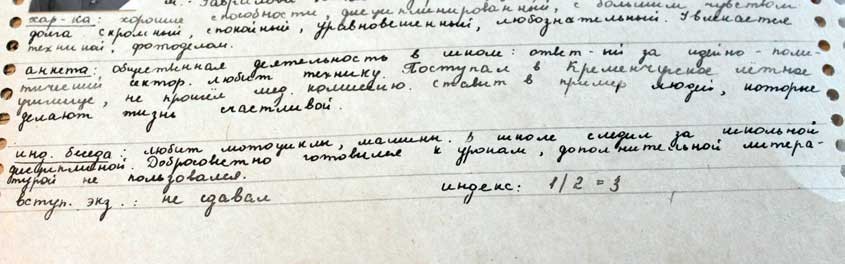 хар-ка: хорошие способности, дисциплинированный, с большим чувством
долга скромный, спокойный, уравновешенный, любознательный. Увлекается
техникой, фотоделом.
анкета: общественная деятельность в школе: ответ-ый за идейно-поли-
тический сектор. любит технику. Поступал в Кременчугское лётное
училище, не прошёл мед. комиссию. ставит в пример людей, которые
делают жизнь счастливой.
инд. беседа: любит мотоциклы, машины. В школе следил за школьной
дисциплиной. Добросовестно готовился к урокам, дополнительной литера-
турой не пользовался.
вступ. экз.: не сдавал индекс: 1/2 = 3